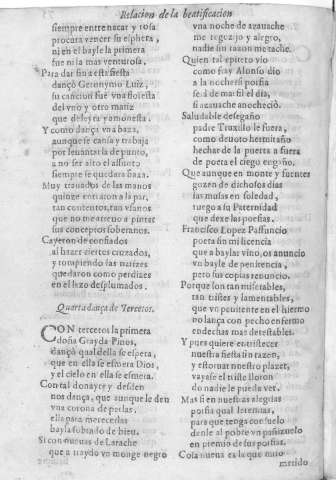 Relacion de la beatificacion
siempre entre nacar y rosa
procura vencer su esphera,
ni en el bayle la primera
fue ni la mas venturosa,
Para dar fin a esta fiesta
dançò Geronymo Luiz,
su cancion fue vna floresta
del vno y otro matiz
que deleyta y amonesta.
Y como dança vna baza,
aunque se cansa y trabaja
por leuantarla de punto,
a no ser alto el assunto
siempre se quedara baza.
Muy trauados de las manos
quinze entraron a la par,
tan contentos, tan vfanos
que no me atreuo a pintar
sus conceptos soberanos.
Cayeron de confiados
al hazer ciertos cruzados,
y rompiendo las narizes
quedaron como perdizes
en el lazo desplumados.
Quarta dança de Tercetos.
CON tercetos la primera
doña Grayda Pinos,
dançò qual della se espera,
que en ella se esmera Dios,
y el cielo en ella se esmera.
Con tal donayre y desden
nos dança, que aunque le den
vna corona de perlas,
ella para merecerlas
bayla sobrado de bien.
Si con nueuas de Larache
que a traydo vn monge negro
vna noche de azauache
me regozijo y alegro,
nadie sin razon me tache.
Quien tal epiteto vio
como fray Alonso dio
a la noche si poesia
serà de martil el dia,
si azauache anochecio.
Saludable desegaño
padre Truxillo le fuera,
como deuoto hermitaño
hechar de la puerta a fuera
de poeta el ciego engaño.
Que aunque en monte y fuentes
gozen de dichosos dias
las musas en soledad,
ruego a su Paternidad
que dexe las poesias.
Francisco Lopez Passuncio
poeta sin mi licencia
que a baylar vino, os anuncio
vn bayle de penitencia,
pero sus copias renuncio.
Porque son tan miserables,
tan tristes y lamentables,
que vn penitente en el hiermo
no lança con pecho enfermo
endechas mas detestables.
Y pues quiere entristecer
nuestra fiesta sin razon,
y estornar nuestro plazer,
vayase el triste lloron
do nadie le pueda ver.
Mas si en nuestras alegrias
poesia qual Ieremias,
para que tenga consuelo
denle al pobre vn pañizuelo
en premio de sus poesias.
Cosa nueua es la que miro
metido